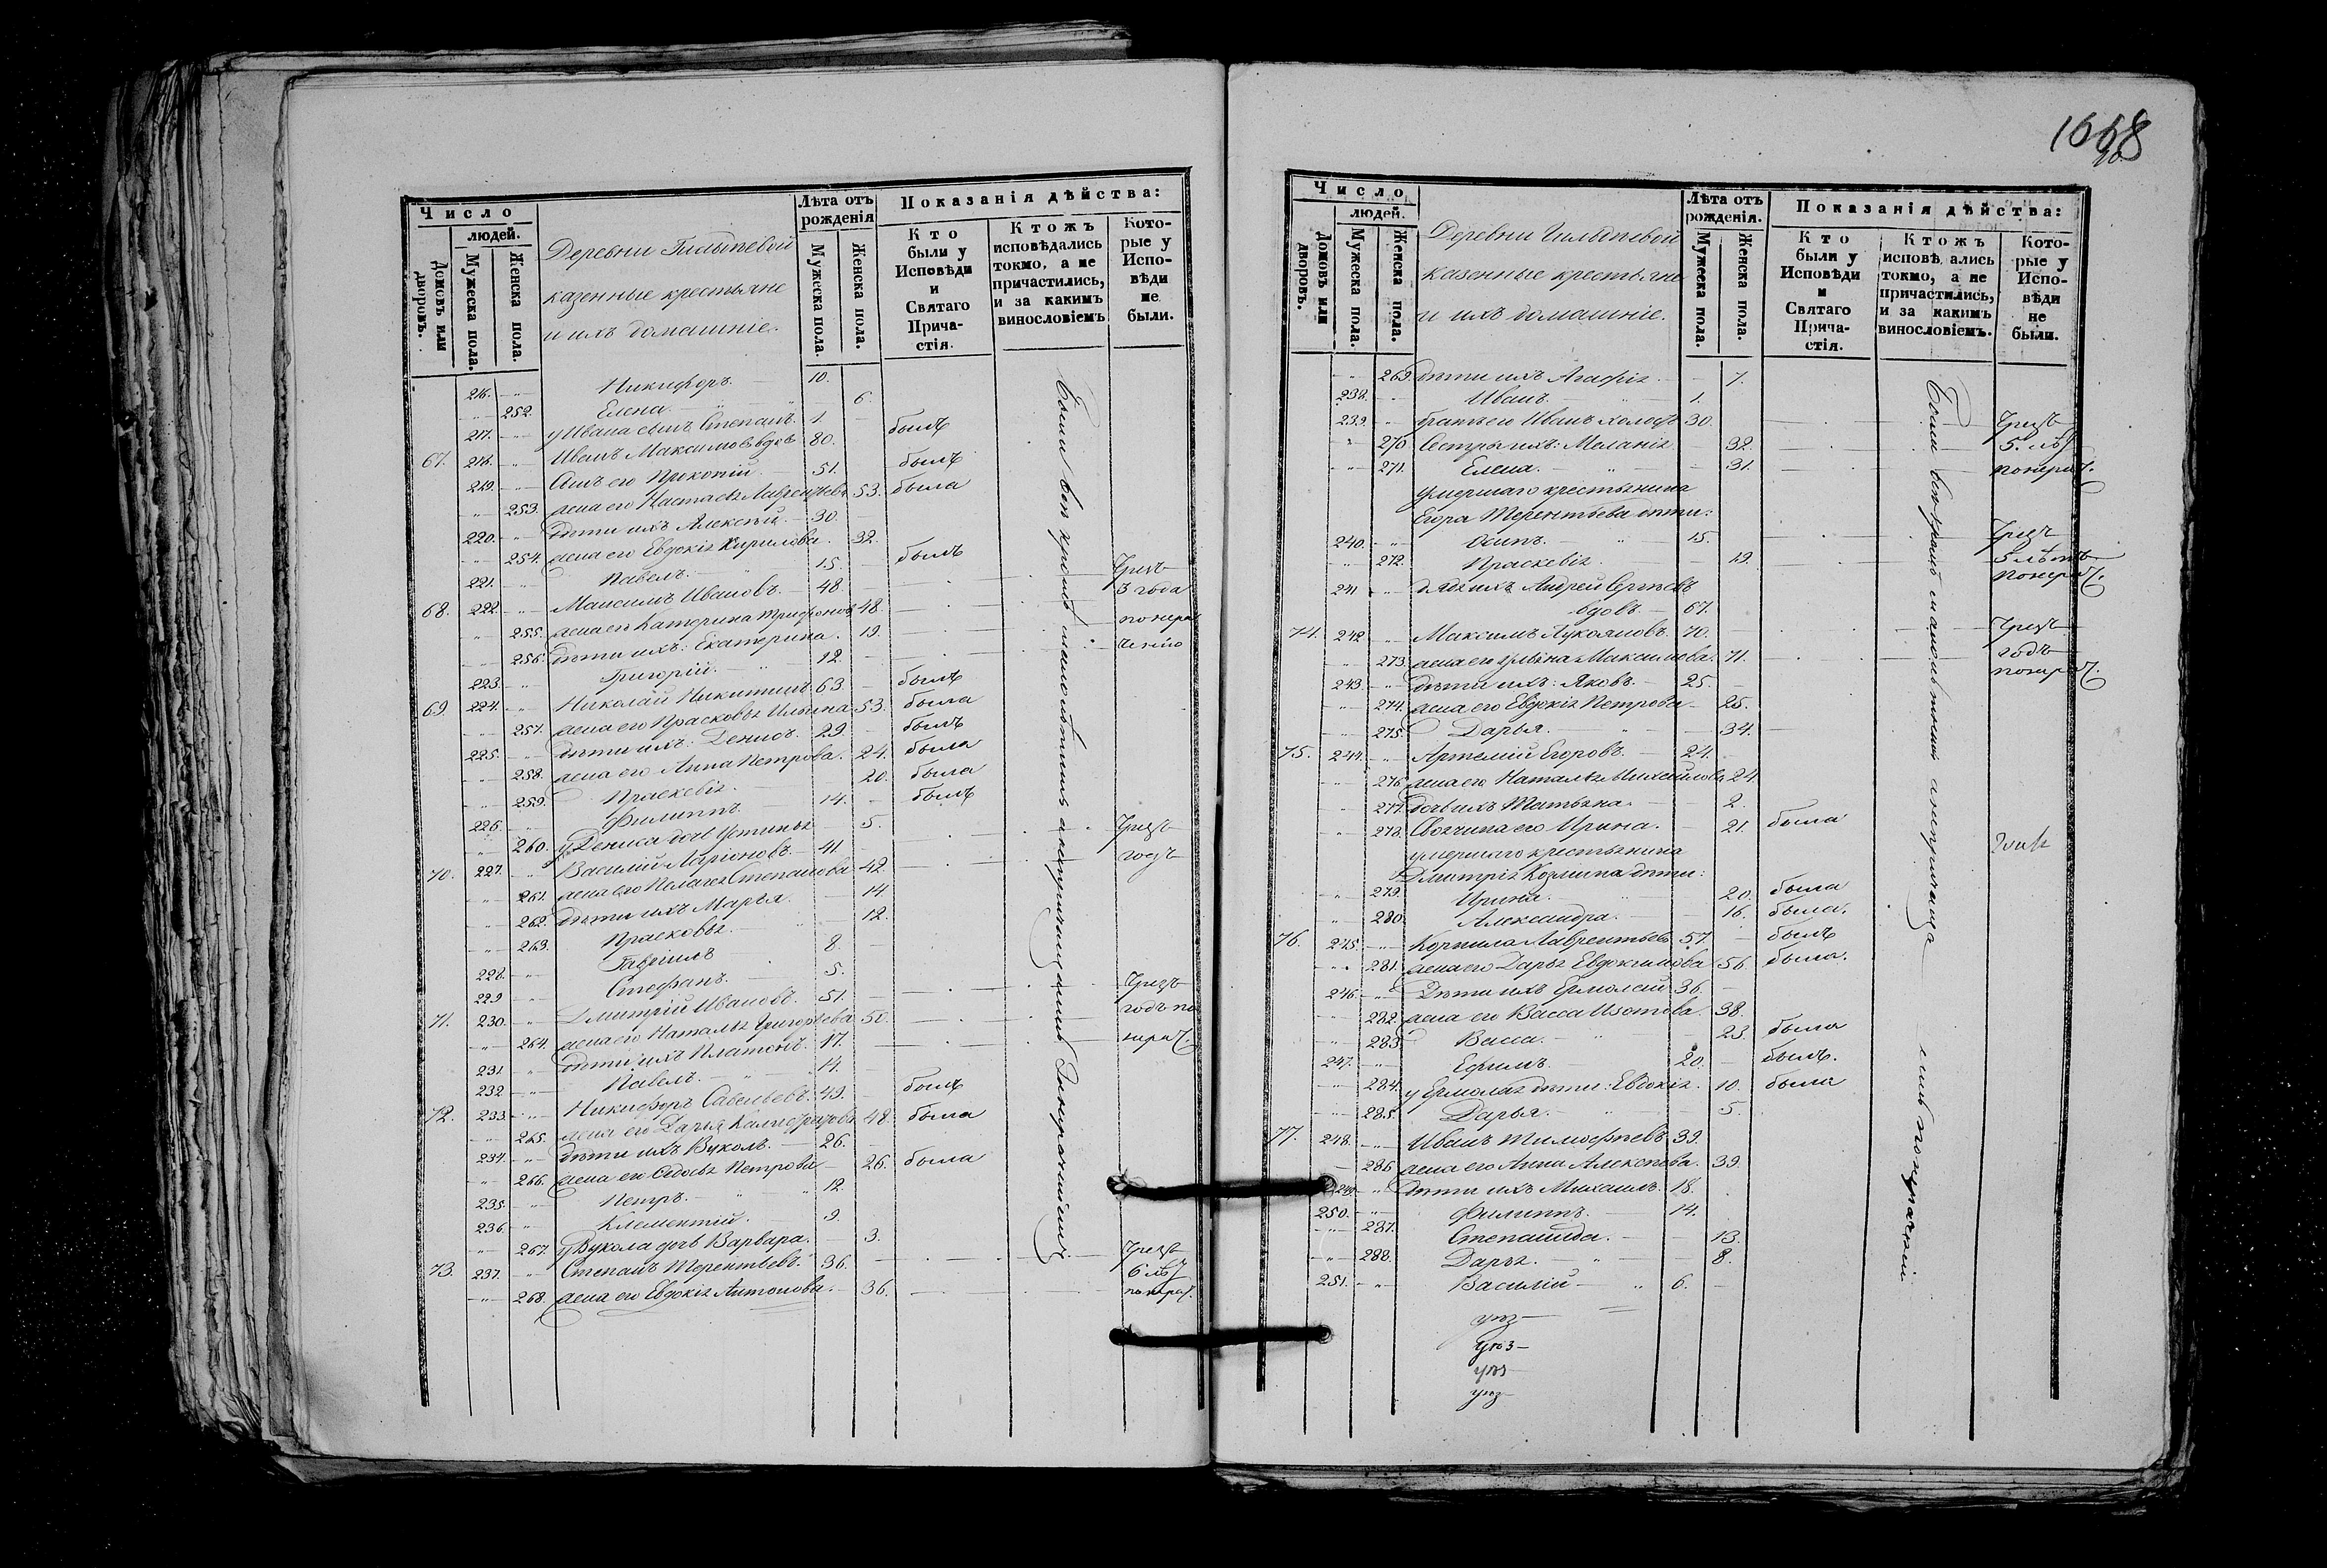 Число
людей.
Домовъ или дворовъ.
Мужеска пола.
Женска пола.
Деревни
казенные крестьяне
и ихъ домашніе.
Лѣта отъ рожденія
Мужеска пола.
Женска пола.
Показанія дѣйства:
Кто были у Исповѣди и Святаго Прича-стія.
Ктожъ исповѣдались токмо, а не причастились, и за какимъ винословіемъ
Кото-рые у Испо-вѣди не были.
216. Никифоръ. 10.
252. Елена. 6.
217. у Ивана сынъ Степанъ. 1
67. 218. Иванъ Максимовъ вдовъ 80. былъ
219. Сынъ его Прокопій. 51. былъ
253. жена его Настасья Лаврентьева 53. была
220. дѣти ихъ Алексѣй. 30.
254. жена его Евдокія Кирилова. 32.
221. Павелъ. 15. былъ
68. 222. Максимъ Ивановъ. 48. Чрезъ
3 года
255. жена его Катерина Трифонова 48. понера
256. дѣти ихъ: Екатерина. 19. ченію
223. Григорій. 12.
69. 224. Николай Никитинъ 63. былъ
257. жена его Прасковья Ильина 53. была
225. дѣти ихъ: Денисъ. 29. былъ
258. жена его Анна Петрова. 24. была
259. Праскевія. 20. была
226. Филиппъ. 14. былъ
260. у Дениса дочь Устинья 5.
70. 227. Василій Ларіоновъ. 41 Чрезъ
261. жена его Пелагея Степанова 42. годъ
262. дѣти ихъ Марья. 14
263. Прасковья. 12.
228. Гавріилъ 8.
229 Стефанъ. 5.
71. 230. Дмитрій Ивановъ. 51. Чрезъ
264. жена его Наталья Григорьева 50. годъ по
231. дѣти ихъ Платонъ. 17. нерач.
232 Павелъ. 14.
72. 233. Никифоръ Савельевъ. 49. былъ
265. жена его Дарья 48. была
234. дѣти ихъ Вуколъ. 26.
266. жена его Федосья Петрова 26. была
235. Петръ. 12.
236. Клементій. 9.
267. у Вукола дочь Варвара. 3.
73. 237. Степанъ Терентьевъ. 36. Чрезъ
6 лѣ
268. жена его Евдокія Антонова. 36. понерач.
Были всѣ кромѣ малолѣтнихъ
1668
Число
людей.
Домовъ или дворовъ.
Мужеска пола.
Женска пола.
Деревни
казенные крестьяне
и ихъ домашніе.
Лѣта отъ рожденія.
Мужеска пола.
Женска пола.
Показанія дѣйства:
Кто были у Исповѣди и Святаго Прича-стія.
Ктожъ исповѣ ались токмо, а не причастились, и за какимъ винословіемъ.
Кото-рые у Испо-вѣди не были.
269. дѣти ихъ Агафія. 7.
238. Иванъ. 1.
239. братъ его Иванъ холостъ 30. Чрезъ
270 Сестры ихъ: Меланія. 32. 5. лѣ
271. Елена. 31. понерач.
умершаго крестьянина
Егора Терентьева дѣти:
240. Осипъ. 15. Чрезъ
272. Праскевія. 19. 5 лѣтъ
понерач.
241 дядя ихъ Андрей Сергѣевъ
вдовъ. 67.
74. 242 Максимъ Лукояновъ. 70. Чрезъ
273. жена его Ульяна Максимова. 71. годъ
понерач.
243. дѣти ихъ: Яковъ. 25.
274. жена его Евдокія Петрова 25.
275. Дарья. 34.
75. 244. Артемій Егоровъ. 24.
276. жена его Наталья Михайлова 24
277. дочь ихъ Татьяна. 2.
278. Своячина его Ирина. 21. была
умершаго крестьянина
Дмитрія Козмина дѣти:
279. Ирина. 20. была
280. Александра. 16. была.
76. 245. Корнила Лаврентьевъ 57. былъ
281. жена его Дарья Евдокимова 56. была.
246. Дѣти ихъ Ермолай 36.
282. жена его Васса Изотова. 38.
283. Васса. 23. была
247. Ефимъ. 20. былъ.
284. у Ермолая дѣти: Евдокія. 10. была
285. Дарья. 5.
77. 248. Иванъ Тимофѣевъ 39.
286 жена его Анна Алексѣева. 39.
249 дѣти ихъ Михаилъ. 18.
250. Филиппъ. 14.
287. Степанида. 13.
288. Дарья. 8.
251. Василій 6.
Были